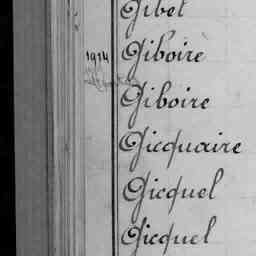 Gibet
1914 Giboire
Giboire
Gicquaire
Gicquel
Gicquel